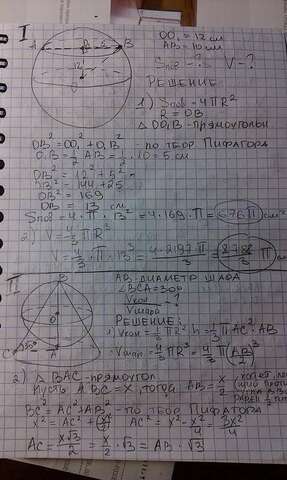 I
OO₁ = 12 см
AB = 10 см
Sпов - ? V - ?
РЕШЕНИЕ
1) Sпов = 4πR²
R = OB
△ OO₁B - прямоугольн
OB² = OO₁² + O₁B² - по теор. Пифагора
O₁B = 1/2 AB = 1/2 · 10 = 5 см
OB² = 12² + 5²
OB² = 144 + 25
OB² = 169
OB = 13 см
Sпов = 4 · π · 13² = 4 · 169 · π = 676π см²
2) V = 4/3 πR³
V = 4/3 · π · 13³ = 4 · 2197 π / 3 = 8788/3 π
II
AB - диаметр шара
∠BCA = 30°
Vкон / Vшара - ?
РЕШЕНИЕ:
1) Vкон = 1/3 πR² · h = 1/3 π AC² · AB
Vшар = 4/3 πR³ = 4/3 π (AB/2)³
2) △ BAC - прямоугол
Пусть BC = x, тогда AB = x/2
BC² = AC² + AB² - по теор Пифагора
x² = AC² + (x/2)² AC² = x² - x²/4 = 3x²/4
AC = x√3/2 = x/2 · √3 = AB · √3